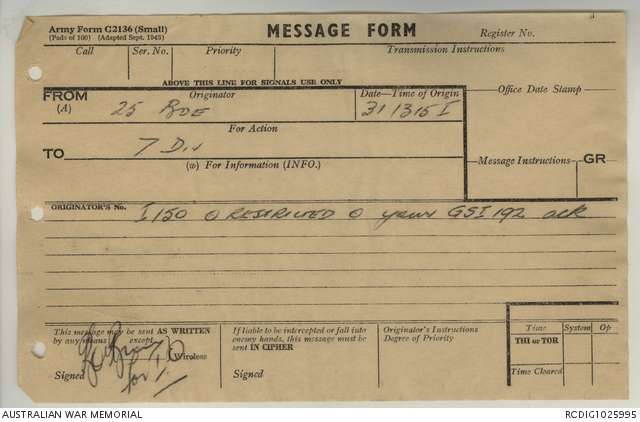 Army Form C2136 (Small)
(Pads of 100) (Adapted Sept. 1943)
MESSAGE FORM
Register No.
Call Ser. No. Priority Transmission Instructions
ABOVE THIS LINE FOR SIGNALS USE ONLY
FROM Originator Date—Time of Origin Office Date Stamp—
(A) 25 BDE 31 1315 I
For Action
TO 7 Div
(W) For Information (INFO.) Message Instructions GR
ORIGINATOR'S No. I 150 O RESTRICTED O your GSI 192 ack
This message may be sent AS WRITTEN
by any means except
Wireless
Signed for I.O
If liable to be intercepted or fall into
enemy hands, this message must be
sent IN CIPHER
Signed
Originator's Instructions
Degree of Priority
Time System Op
THI or TOR
Time Cleared
AUSTRALIAN WAR MEMORIAL RCDIG1025995